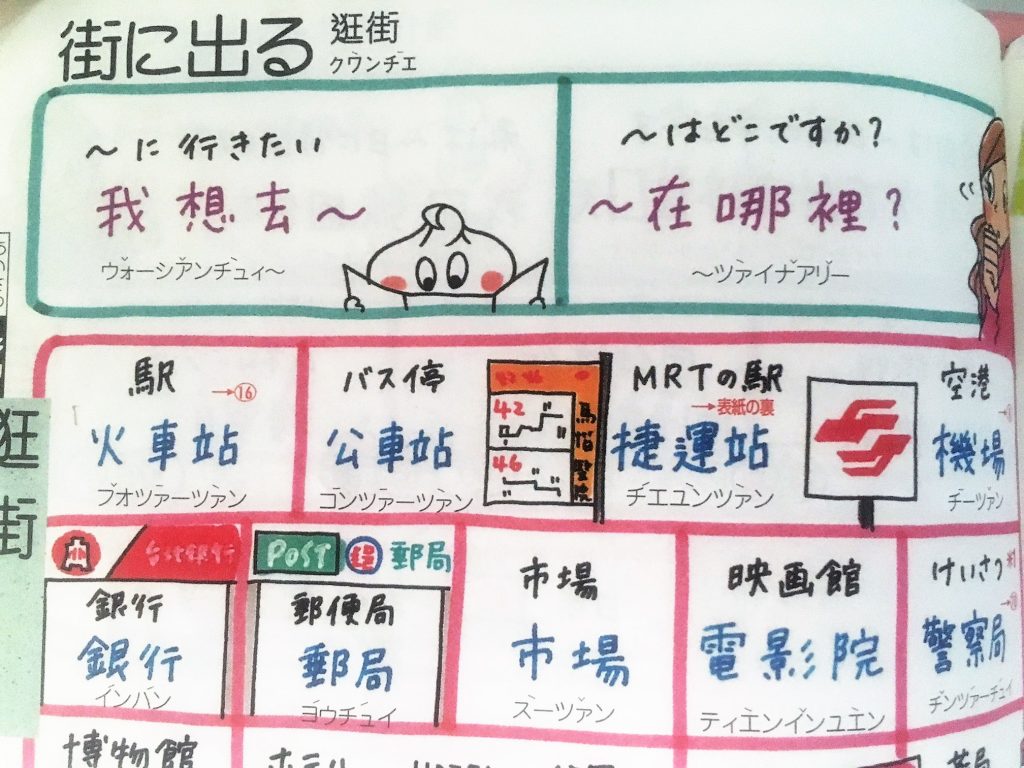 街に出る
逛街
クワンチエ
～に行きたい
我想去～
ウォーシアンチュィ～
～はどこですか？
～在哪裡？
～ツァイナアリー
駅
→⑯
火車站
フオツァーツァン
バス停
公車站
コンツァーツァン
42
46
MRTの駅
→表紙の裏
捷運站
チエユンツァン
空港
機場
チーツァン
逛街
台北銀行
銀行
銀行
インハン
POST
郵局
郵便局
郵局
ヨウチュイ
市場
市場
スーツァン
映画館
電影院
ティエンインユエン
けいさつ
警察局
チンツァーチュイ
博物館
ホテル